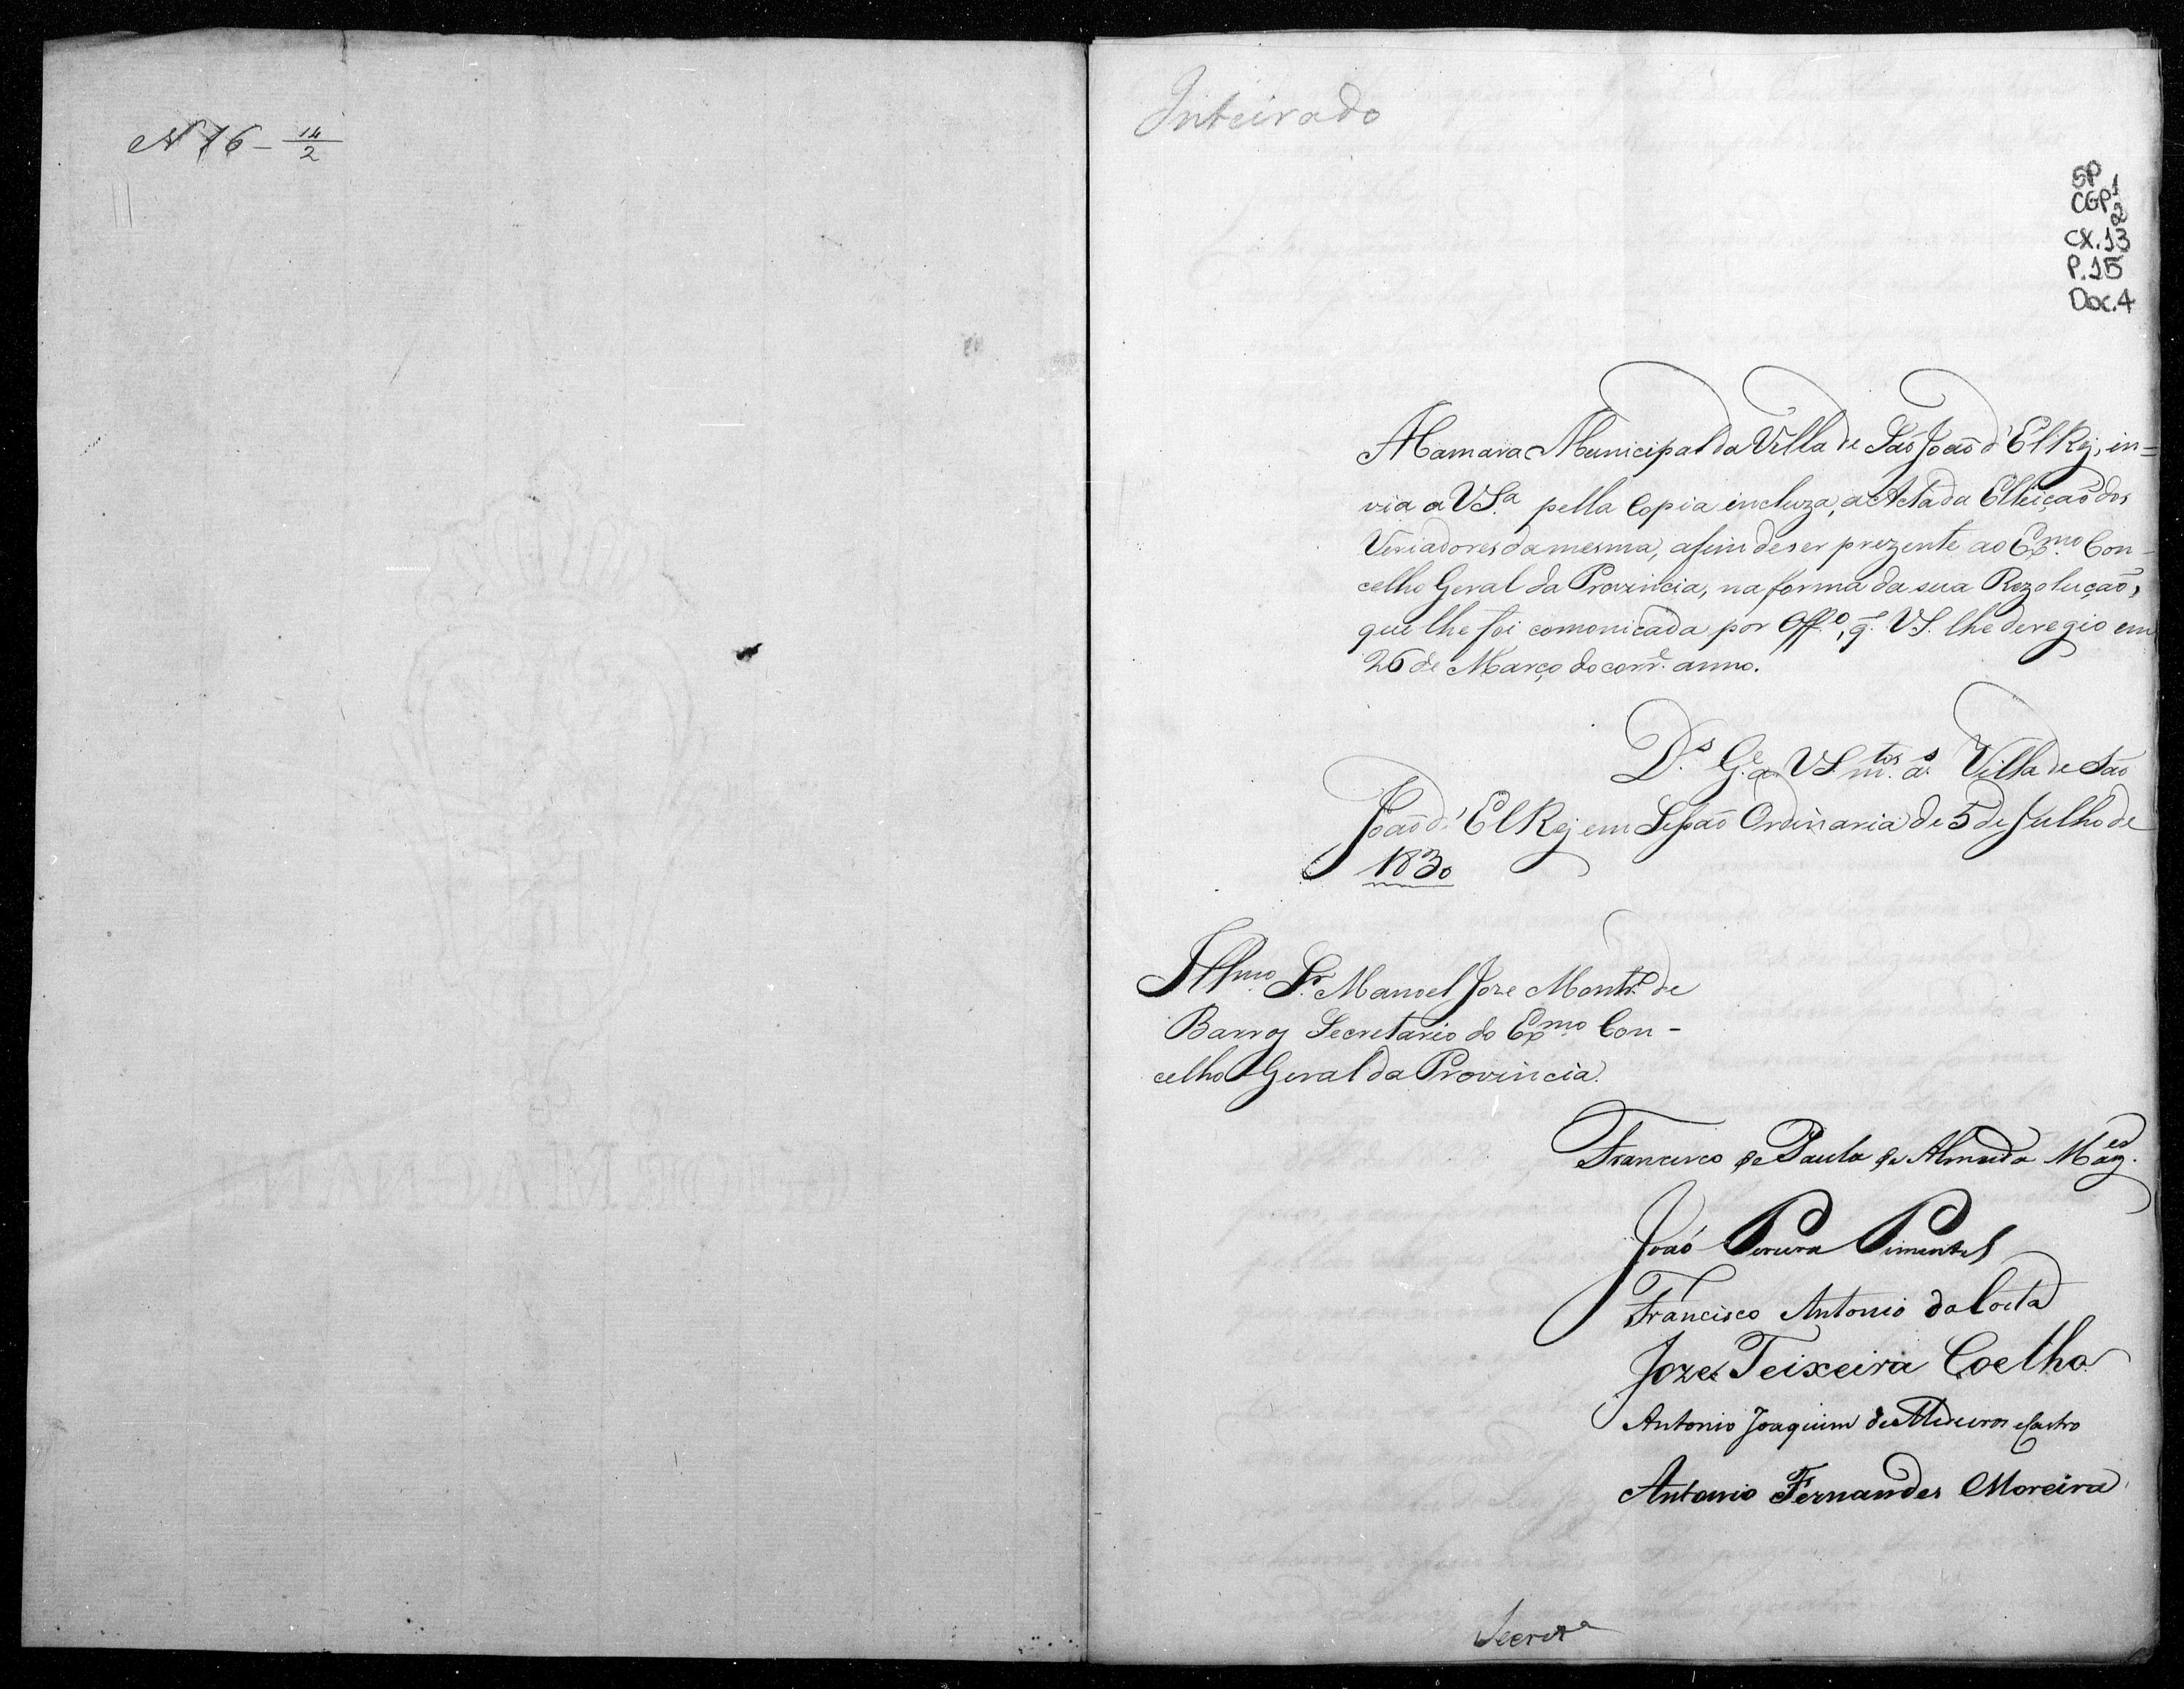 N 16 - 14/2
Inteirado
SP
CGP1 2
CX.13
P.15
Doc.4
A Camara Municipal da Villa de São João d'El Rej, in=
via a VS.ª pella Copia incluza, a Acta da Elleição dos
Veriadores da mesma, afim de ser prezente ao Ex.mo Con-
celho Geral da Provincia, na forma da sua Rezolução,
que lhe foi comonicada por Off.º, q̃. VS. lhe deregio em
26 de Março do corr.e anno.
D.s G.e a VS. m.tos a.s Villa de São
João d'El Rej em Sessão Ordinaria de 5 de Julho de
1830
Illmo Sr. Manoel Joze Montr.º de
Barros Secretario do Ex.mo Con-
celho Geral da Provincia.
Francisco de Paula de Almeida Mag.es
João Pereira Pimentel
Francisco Antonio da Costa
Joze Teixeira Coelho
Antonio Joaquim de Medeiros e Castro
Antonio Fernandes Moreira